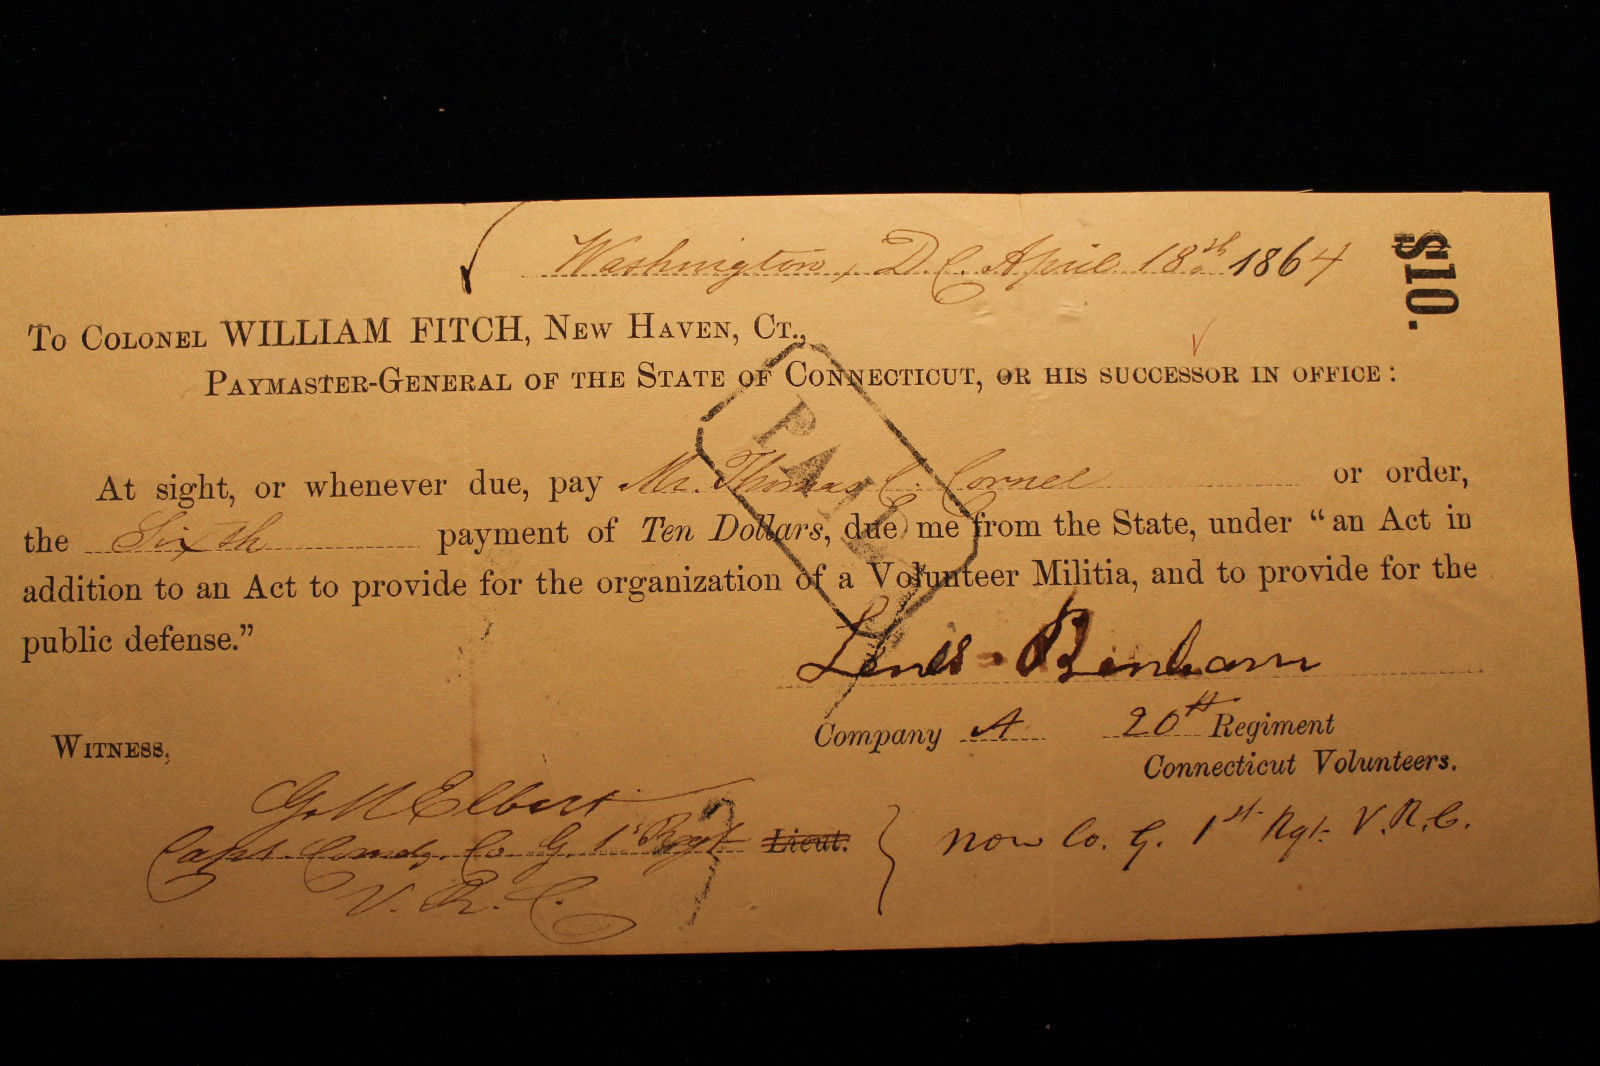 Washington, D.C. April 18th 1864
$10.
To Colonel WILLIAM FITCH, New Haven, Ct.,
Paymaster-General of the State of Connecticut, or his successor in office:
PAID
At sight, or whenever due, pay Mr. Thomas C. Cornel or order,
the Sixth payment of Ten Dollars, due me from the State, under “an Act in
addition to an Act to provide for the organization of a Volunteer Militia, and to provide for the
public defense.”
Benham
Company A 20th Regiment
Witness,
Connecticut Volunteers.
Elbert
Capt. Comdg. Co. G. 1st Regt Lieut. } now Co. G. 1st Rgt. V.R.C.
V. R. C.